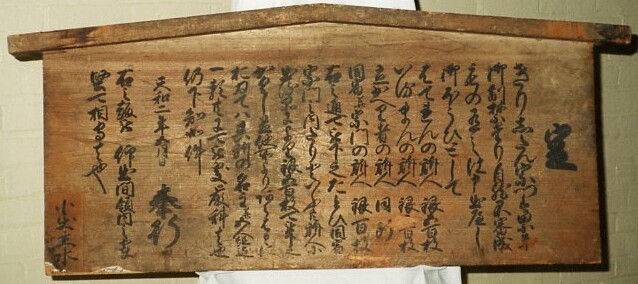 定
きりしたん宗門は累年
御制禁たり自然不審成
もの有之は申出へし
御ほうひとして
はてれんの訴人 銀五百枚
いるまんの訴人 銀三百枚
立かへり者の訴人 同断
同宿并宗門の訴人 銀百枚
右之通可被下之たとひ同宿
宗門之内たりといふとも訴人に
出る品により銀五百枚可被下之
かくし置他所よりあらはるゝに
おゐてハ其所の名主并五人組迄
一類ともに可被行罪科者也
仍下知如件
天和二年五月日
奉行
右之趣被 仰出間領内之輩
堅可相守者也